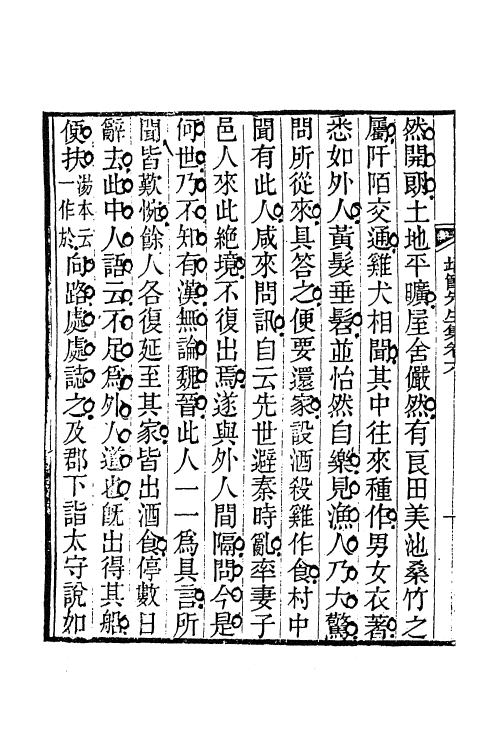 然開朗土地平曠屋舍儼然有良田美池桑竹之
屬阡陌交通雞犬相聞其中往來種作男女衣著
悉如外人黃髮垂髫並怡然自樂見漁人乃大驚
問所從來具答之便要還家設酒殺雞作食村中
聞有此人咸來問訊自云先世避秦時亂率妻子
邑人來此絕境不復出焉遂與外人間隔問今是
何世乃不知有漢無論魏晉此人一一為具言所
聞皆歎惋餘人各復延至其家皆出酒食停數日
辭去此中人語云不足為外人道也既出得其船
便扶湯本云一作於向路處處誌之及郡下詣太守說如